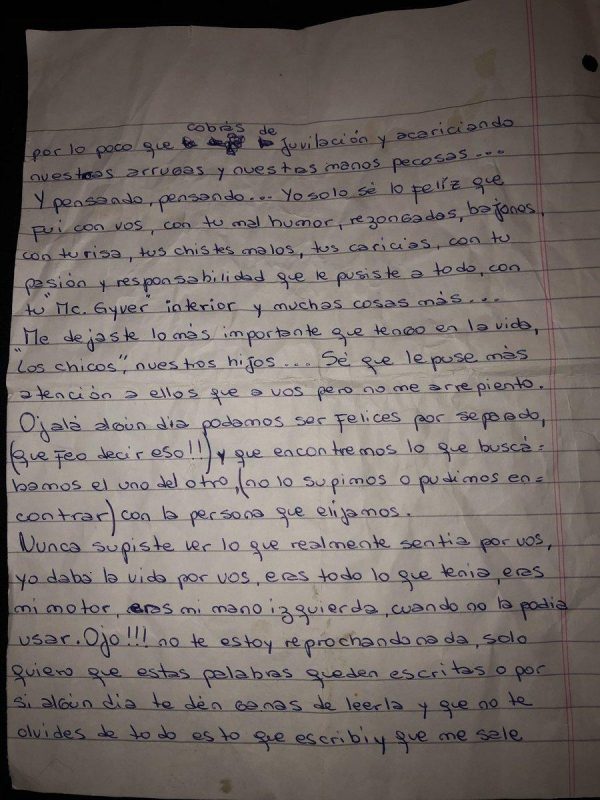 cobrás de
por lo poco que juvilación y acariciando
nuestras arrugas y nuestras manos pecosas....
Y pensando, pensando... Yo solo sé lo felíz que
fui con vos, con tu mal humor, rezongadas, bajones,
con tu risa, tus chistes malos, tus caricias, con tu
pasión y responsabilidad que le pusiste a todo, con
tu "Mc. Gyver" interior y muchas cosas más....
Me dejaste lo más importante que tengo en la vida,
"Los chicos", nuestros hijos.... Sé que le puse más
atención a ellos que a vos pero no me arrepiento.
Ojalá algún dia podamos ser felices por separado,
(que feo decir eso!!) y que encontremos lo que buscá=
bamos el uno del otro, (no lo supimos o pudimos en=
contrar) con la persona que elijamos.
Nunca supiste ver lo que realmente sentia por vos,
yo daba la vida por vos, eras todo lo que tenia, eras
mi motor, eras mi mano izquierda, cuando no la podia
usar. Ojo!!! no te estoy reprochando nada, solo
quiero que estas palabras queden escritas o por
si algún dia te dén ganas de leerla y que no te
olvides de todo esto que escribi y que me sale